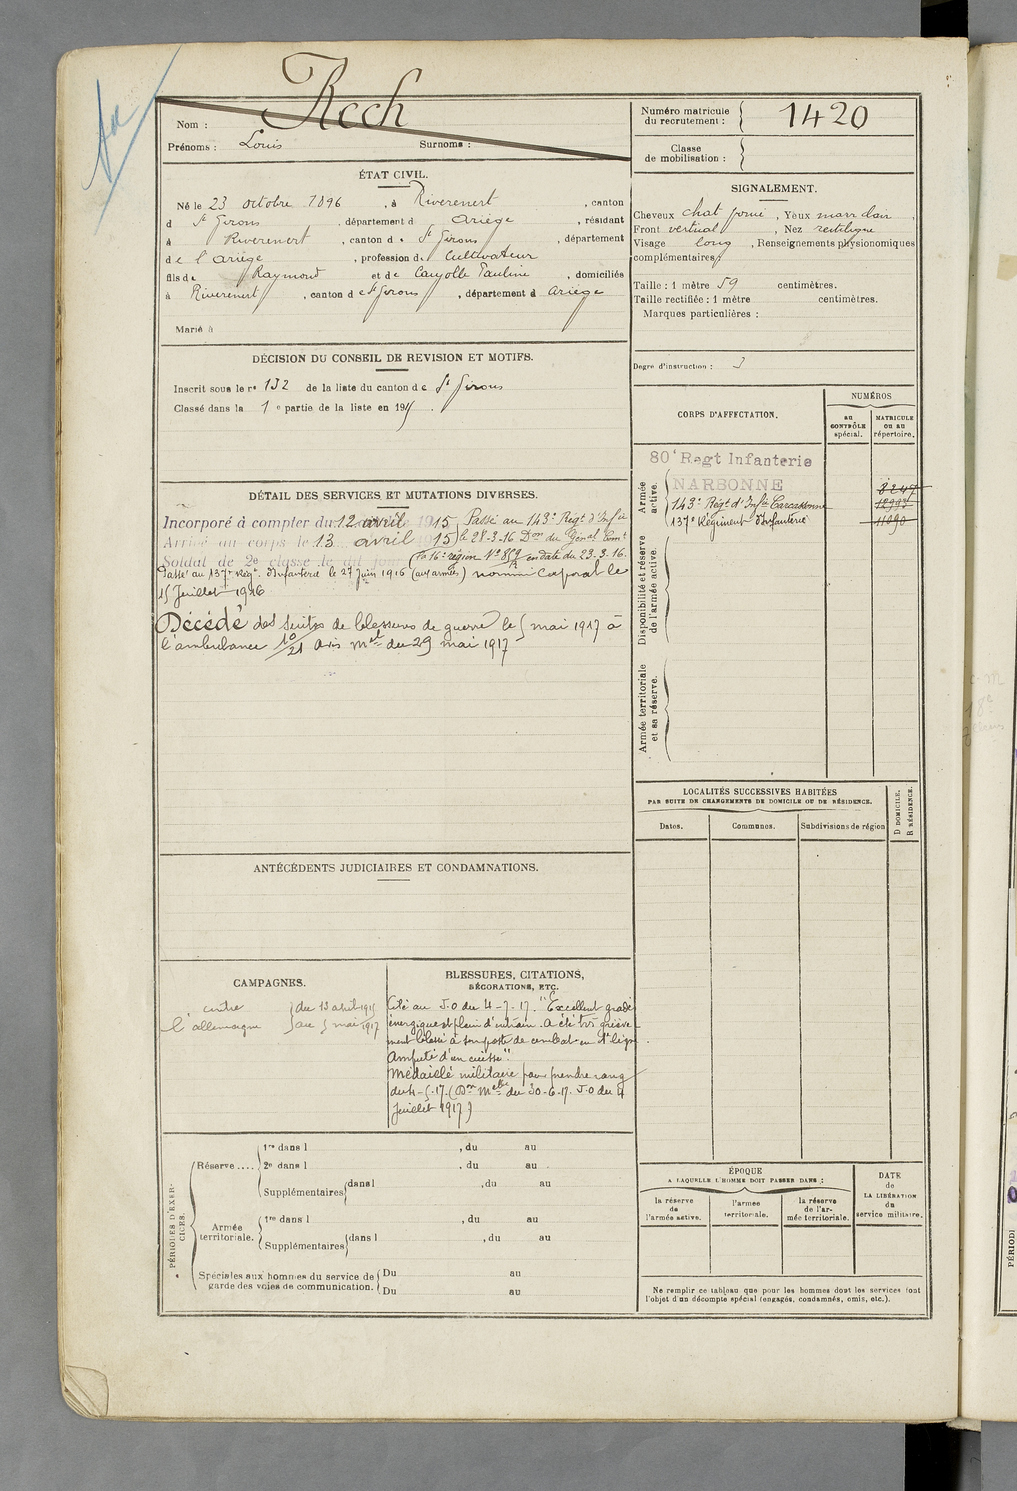 Nom : Rech
Prénoms : Louis Surnoms :
Numéro matricule du recrutement : 1420
Classe de mobilisation :
ÉTAT CIVIL.
Né le 23 octobre 1896, à Riverenert, canton
d St Girons, département d Ariège, résidant
à Riverenert, canton de St Girons, département
de l'ariège, profession de Cultivateur
fils de Raymond et de Cayolle Pauline, domiciliés
à Riverenert, canton de St Girons, département d Ariège
Marié à
SIGNALEMENT.
Cheveux chat foncé, Yeux marr clair,
Front vertical, Nez rectiligne
Visage long, Renseignements physionomiques
complémentaires
Taille : 1 mètre 59 centimètres.
Taille rectifiée : 1 mètre centimètres.
Marques particulières :
Degré d'instruction : 3
DÉCISION DU CONSEIL DE REVISION ET MOTIFS.
Inscrit sous le no 132 de la liste du canton de St Girons
Classé dans la 1e partie de la liste en 1915.
DÉTAIL DES SERVICES ET MUTATIONS DIVERSES.
Incorporé à compter du 12 avril 1915 Passé au 143e Régt d'Infie
Arrivé au corps le 13 avril 1915 le 28-3-16 Don du Génal Comt
Soldat de 2e classe le dit jour la 16e région No 859 en date du 23.3.16.
Passé au 137e Régt. d'Infanterie le 27 juin 1916 (aux armées) nommé Caporal le
15 Juillet 1916
Décédé des suites de blessures de guerre le 5 mai 1917 à
l'ambulance 10/21 avis mel du 29 mai 1917
CORPS D'AFFECTATION.
NUMÉROS
au CONTRÔLE spécial.
MATRICULE ou au répertoire.
Armée active.
80e Regt Infanterie
NARBONNE 8247
143e Régt d'Infie Carcassonne
137e Régiment d'Infanterie 11090
Disponibilité et réserve de l'armée active.
Armée territoriale et sa réserve.
LOCALITÉS SUCCESSIVES HABITÉES
PAR SUITE DE CHANGEMENTS DE DOMICILE OU DE RÉSIDENCE.
Dates. Communes. Subdivisions de région D DOMICILE. R RÉSIDENCE.
ANTÉCÉDENTS JUDICIAIRES ET CONDAMNATIONS.
CAMPAGNES.
contre du 13 avril 1915
l'allemagne au 5 mai 1917
BLESSURES, CITATIONS,
DÉCORATIONS, ETC.
Cité au J.O du 4-7-17. "Excellent gradé
énergique et plein d'entrain. A été très griève-
ment blessé à son poste de combat en 1e ligne.
Amputé d'un cuisse".
Médaillé militaire pour prendre rang
du 4-5-17. (Don Melle du 30-6-17. J.O du 4
Juillet 1917)
PÉRIODES D'EXERCICES.
Réserve .... 1re dans l , du au
2e dans l , du au .
Supplémentaires dans l , du au
Armée territoriale. 1re dans l , du au
Supplémentaires dans l , du au
Spéciales aux hommes du service de garde des voies de communication. Du au
Du au
ÉPOQUE
A LAQUELLE L'HOMME DOIT PASSER DANS :
la réserve de l'armée active.
l'armée territoriale.
la réserve de l'armée territoriale.
DATE de LA LIBÉRATION du service militaire.
Ne remplir ce tableau que pour les hommes dont les services font
l'objet d'un décompte spécial (engagés, condamnés, omis, etc.).
PÉRIODI